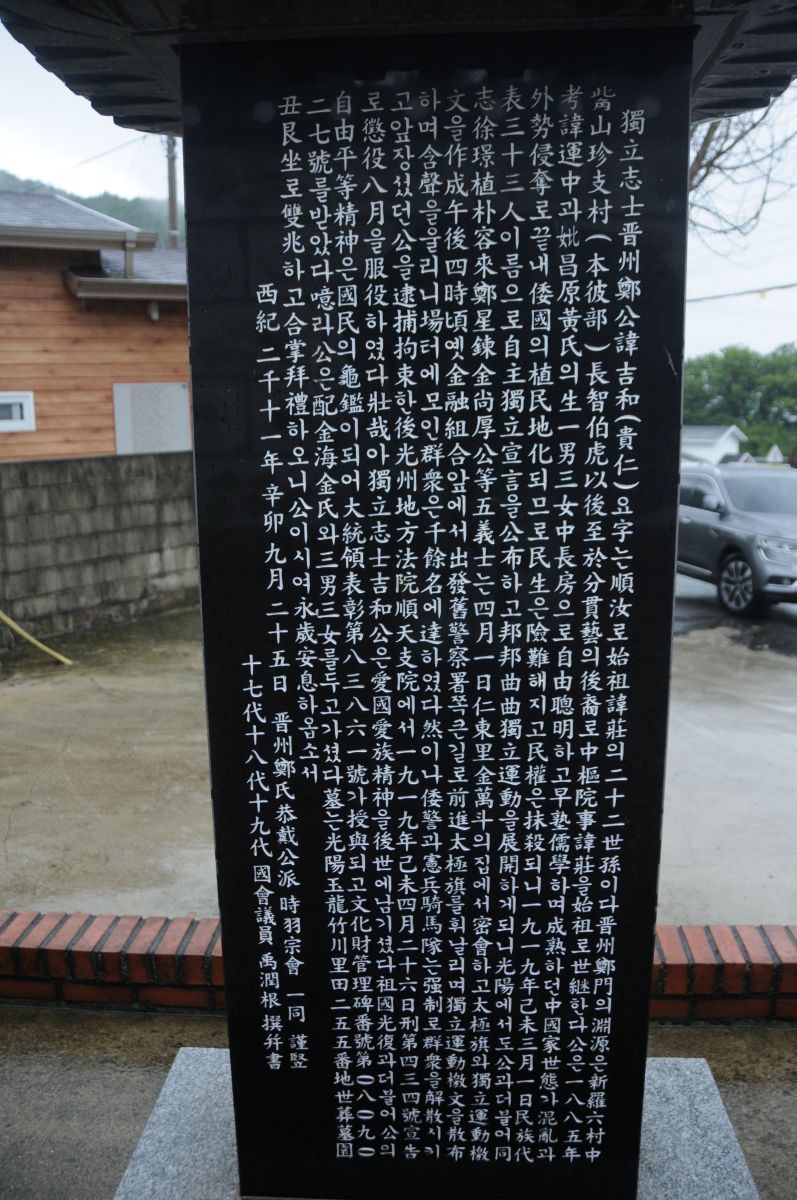 獨立志士晋州鄭公諱吉和(貴仁)요字는順汝로始祖諱莊의二十二世孫이다晋州鄭門의淵源은新羅六村中
觜山珍支村(本彼部)長智伯虎以後至於分貫藝의後裔로中樞院事諱莊을始祖로世継한다公은一八八五年
考諱運中과妣昌原黃氏의生一男三女中長房으로自由聰明하고早塾儒學하며成熟하던中國家世態가混亂과
外勢侵奪로끝내倭國의植民地化되므로民生은險難해지고民權은抹殺되니一九一九年己未三月一日民族代
表三十三人이름으로自主獨立宣言을公布하고邦邦曲曲獨立運動을展開하게되니光陽에서도公과더불어同
志徐璟植朴容來鄭星鍊金尚厚公等五義士는四月一日仁東里金萬斗의집에서密會하고太極旗와獨立運動檄
文을作成午後四時頃옛金融組合앞에서出發舊警察署쪽큰길로前進太極旗를휘날리며獨立運動檄文을散布
하며含聲을울리니場터에모인群衆은千餘名에達하였다然이나倭警과憲兵騎馬隊는强制로群衆을解散시키
고앞장섰던公을逮捕拘束한後光州地方法院順天支院에서一九一九年己未四月二十六日刑第四三四號宣告
로懲役八月을服役하였다壯哉아獨立志士吉和公은愛國愛族精神을後世에남기셨다祖國光復과더불어公의
自由平等精神은國民의龜鑑이되어大統領表彰第八三八六一號가授與되고文化財管理碑番號第0八0九0
二七號를받았다噫라公은配金海金氏와三男三女를두고가셨다墓는光陽玉龍竹川里田二五五番地世葬墓園
丑艮坐로雙兆하고合掌拜禮하오니公이시여永歲安息하옵소서
西紀 二千十一年 辛卯九月 二十五日 晋州鄭氏恭戴公派 時羽宗會 一同 謹竪
十七代十八代十九代 國會議員 禹潤根 撰幷書